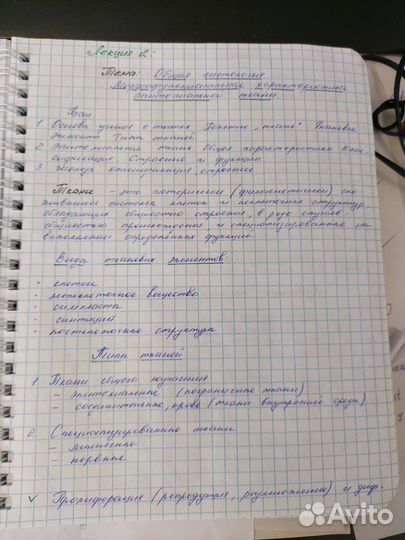 Лекция 2.
Тема: Общая гистология
Морфофункциональная характеристика
эпителиальной ткани.
План
1 Основы учения о тканях. Понятие „ткань“. Тканевые
элементы. Типы тканей
2 Эпителиальная ткань. Общая характеристика. Клас
сификация. Строение и функции.
3 Железы, классификация, строение
Ткани - это исторически (филогенетически) сло
жившаяся система клеток и неклеточных структур,
обладающих общностью строения, в ряде случаев -
общностью происхождения и специализированная на
выполнении определённых функций.
Виды тканевых элементов
· клетки
· межклеточное вещество
· симпласты
· синтиций
· постклеточные структуры
Типы тканей
1 Ткани общего назначения
- эпителиальные (пограничные ткани)
- соединительные, кровь (ткани внутренней среды)
2 Специализированные ткани
- мышечные
- нервные
✓ Пролиферация (репродукция, размножение) и диф.
Avito